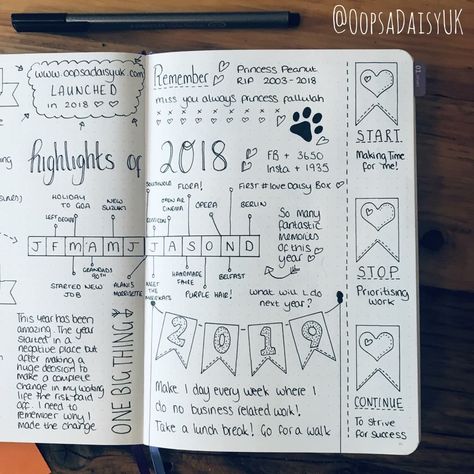 @OopsaDaisyUK
www.oopsadaisyuk.com
LAUNCHED
in 2018
Remember
Princess Peanut
RIP 2003-2018
miss you always princess pallulah
highlights of 2018
FB + 3650
Insta + 1935
HOLIDAY
TO GOA
LEFT DECHU
NEW
SUZUKI
SOUTHWOLD
FLORA!
OPEN AIR
CINEMA
OPERA
FIRST #love Daisy Box
BERLIN
J F M A M J J A S O N D
STARTED NEW
JOB
GRANDADS
90TH
ALANIS
MORRISSETTE
MEET
THE
MEERKATS
HANDMADE
FAIRE
PURPLE HAIR!
BELFAST
So many
fantastic
memories
of this
year
What will I do
next year?
This year has been
amazing. The year
started in a
negative place but
after making a
huge decision to
make a complete
change in my working
life the risk paid
off. I need to
remember why I
made the change
ONE BIG THING
2019
Make 1 day every week where I
do no business related work!
Take a lunch break! Go for a walk
START
Making Time
for me!
STOP
Prioritising
work
CONTINUE
To strive
for success